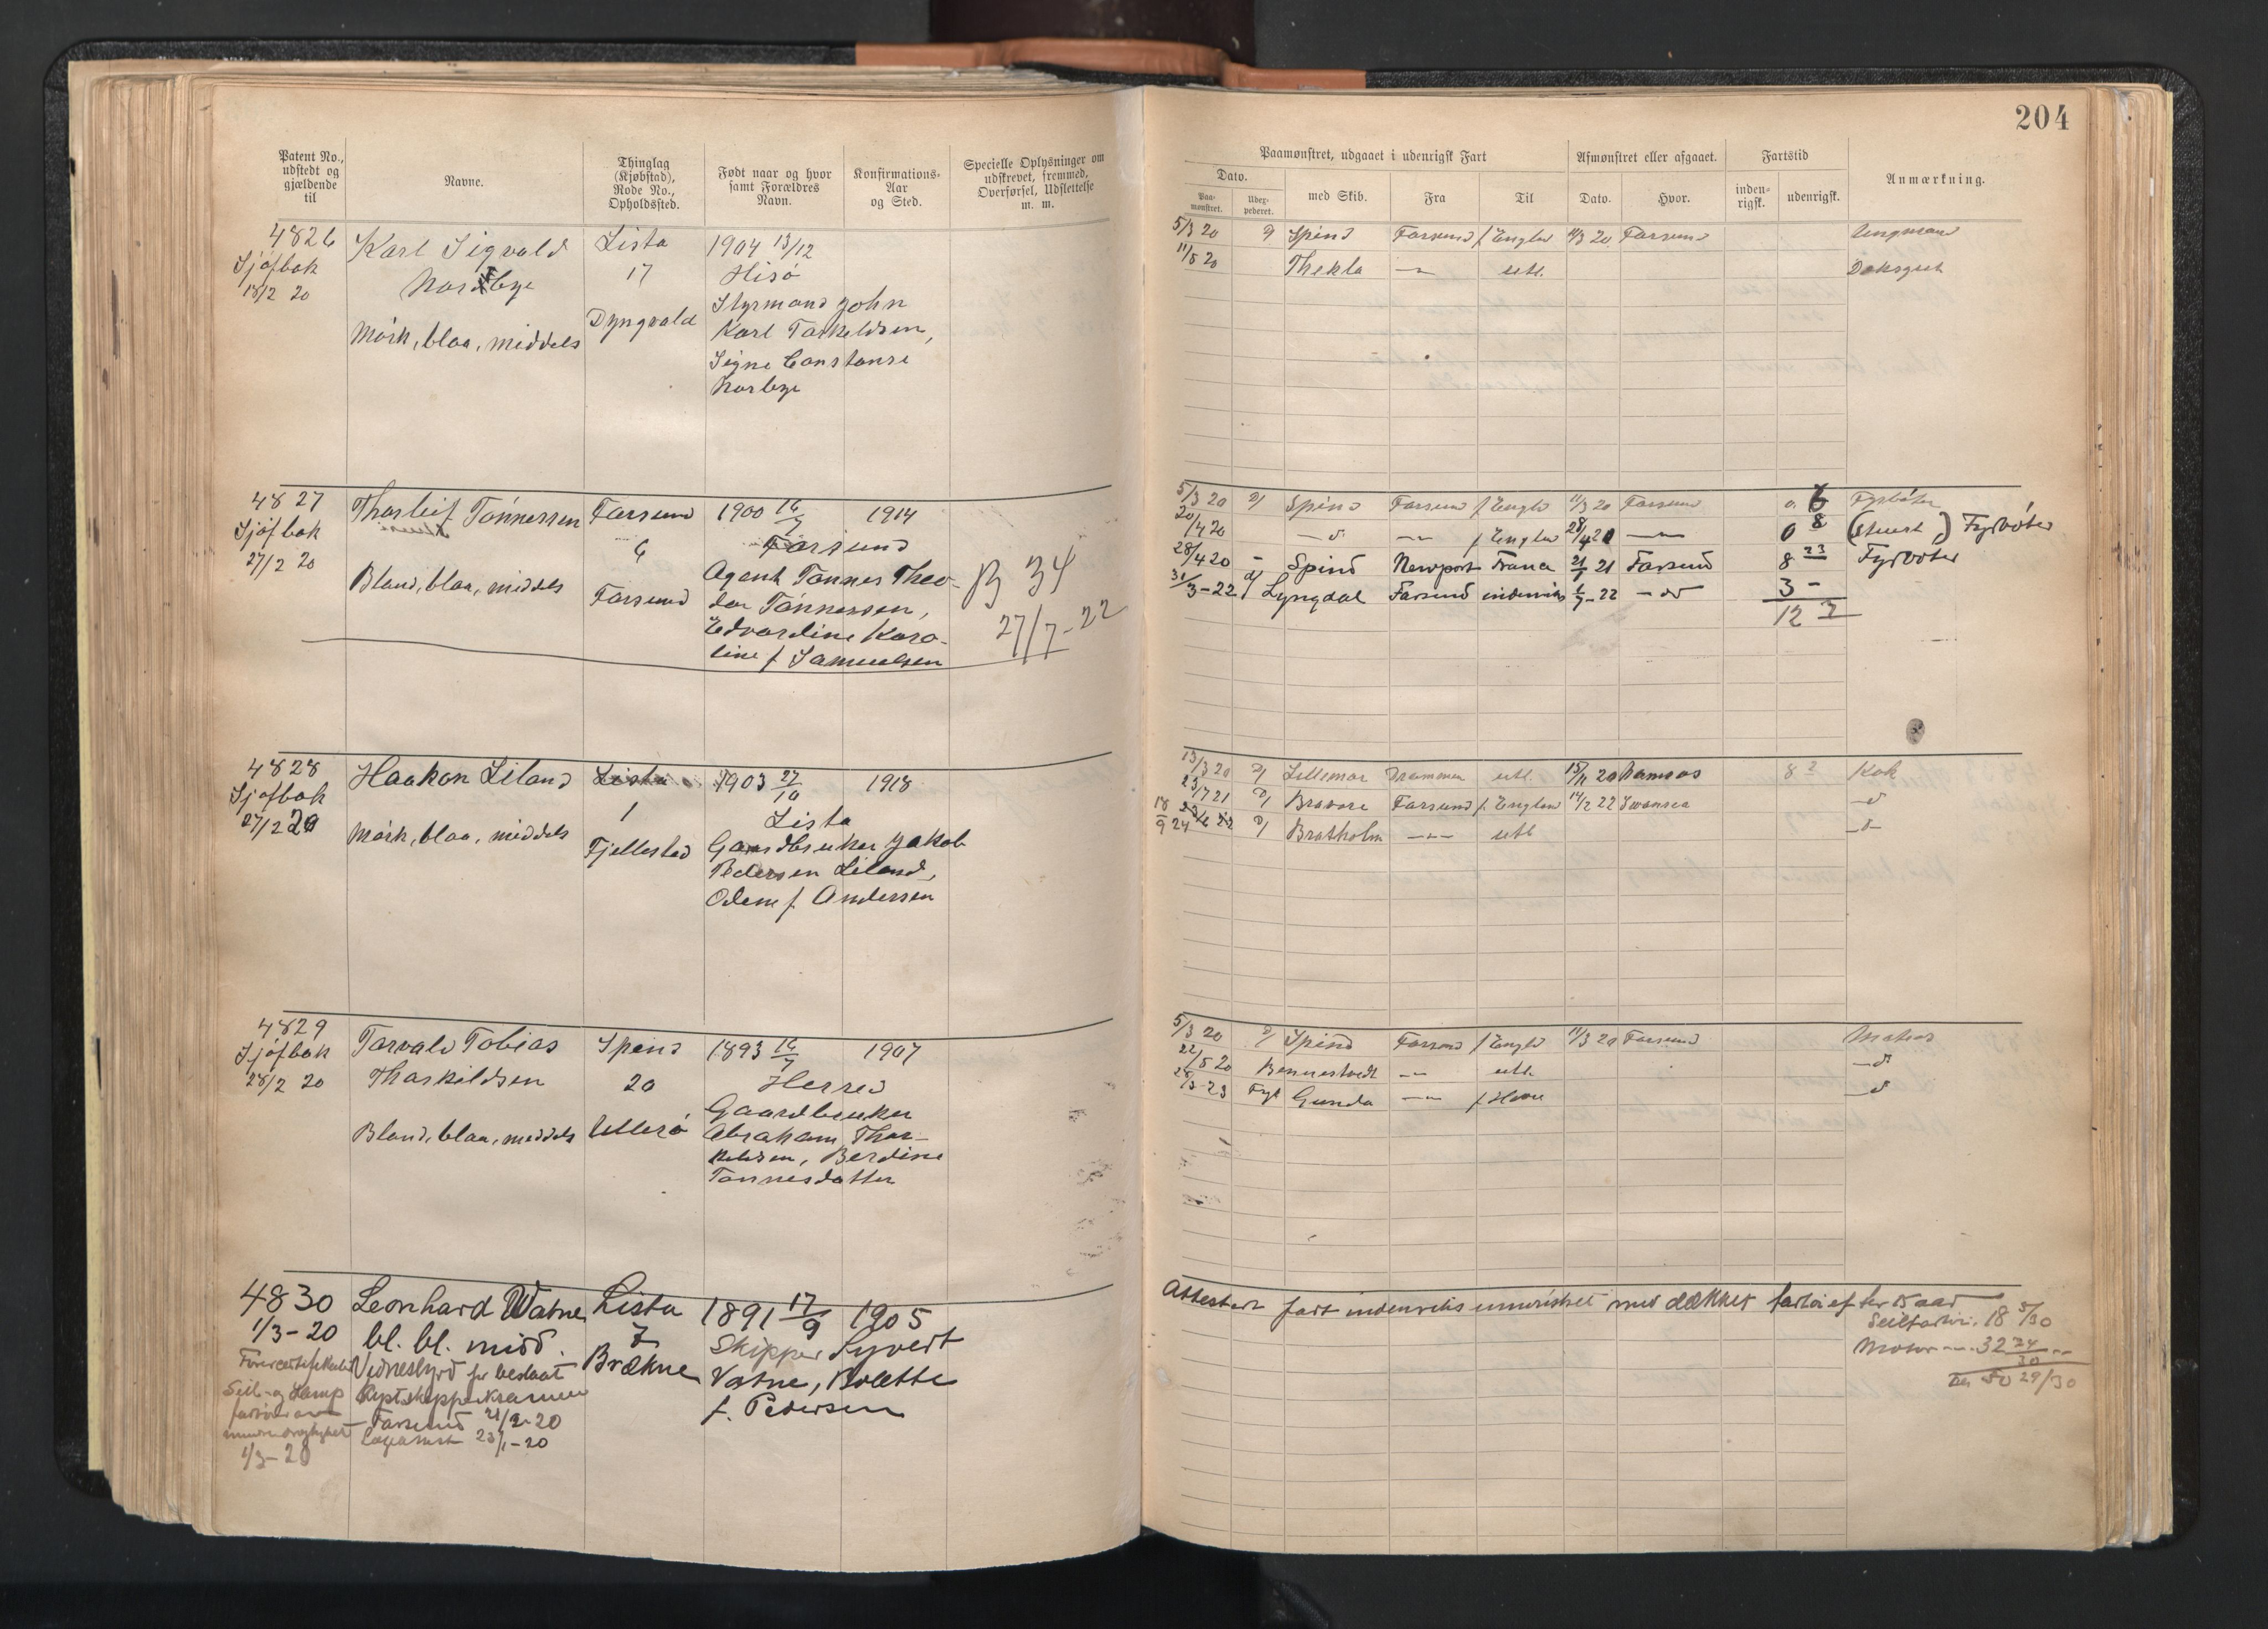 204
Patent No., udstedt og gjældende til
Navne.
Thinglag (Kjøbstad), Rode No., Opholdssted.
Født naar og hvor samt Forældres Navn.
Konfirmations-Aar og Sted.
Specielle Oplysninger om udskrevet, fremmed, Overførsel, Udslettelse m. m.
Paamønstret, udgaaet i udenrigsk Fart
Afmønstret eller afgaaet.
Fartstid
Anmærkning.
Dato.
Paamønstret.
Udexpederet.
med Skib.
Fra
Til
Dato.
Hvor.
indenrigsk.
udenrigsk.
4826
Sjøfbok
18/2 20
Karl Sigvald
Nordbye
Mörk, blaa, middels
Lista
17
Dyngvold
1904 13/12
Hisö
Styrmand John
Karl Torkeldsen,
Signe Constanse
Norbye
5/3 20 D/ Spind Farsund f/ Engld 11/3 20 Farsund Ungmand
11/5 20 Thekla -"- utl. Daksgut
4827
Sjöfbok
27/2 20
Thorleif Tönnessen
Blond, blaa, middels
Farsund
6
Farsund
1900 16/7 1914
Farsund
Agent Tönnes Theo-
dor Tönnessen,
Edvardine Karo-
line f. Samuelsen
B 34
27/7-22
5/3 20 D/ Spind Farsund f/ Engld 11/3 20 Farsund 0 6 Fyrböter
20/4 20 -d- -"- f/ Englan 28/4 20 -"- 0 8 ( ) Fyrböter
28/4 20 - Spind Newport Frana 21/1 21 Farsund 8 23 Fyrböter
31/3-22 d/ Lyngdal Farsund indenriks 1/7-22 -"- 3 -
12 7
4828
Sjöfbok
27/2 20
Haakon Liland
Mörk, blaa, middels
Lista
1
Fjellestad
1903 27/10 1918
Lista
Gaardbruker Jakob
Pedersen Liland,
f. Andersen
13/3 20 D/ Lillemor Drammen utl. 15/11 20 Namsos 8 2 Kok
23/7 21 D/ Bravore Farsund f. Englan 14/2 22 Swansea -d-
18/9 24 D/ Bratholm -"- utl -d-
4829
Sjöfbok
28/2 20
Torvald Tobias
Thorkildsen
Blond, blaa, middels
Spind
20
Ullerö
1893 16/7 1907
Herred
Gaardbruker
Abraham Thor-
kildsen, Berdine
Tönnesdatter
5/3 20 D/ Spind Farsund f/ Engld 11/3 20 Farsund Matros
22/5 20 Bennestvedt -"- utl. -d-
28/3-23 Gunda -"- -d-
4830
1/3-20
Leonhard Vatne
bl. bl. midd.
Vidnesbyrd for bestaat
Kystskippereksamen
Farsund 21/2-20
Lægeattest 23/1-20
Seil- og damp
1/3-20
Lista
7
Brækne
1891 17/9 1905
Skipper Syvert
Vatne, Bolette
f. Pedersen
Attestert fart indenriks med dækket fartöi efter 15 aar
18 5/30
Motor -"- 32 24/30
50 29/30